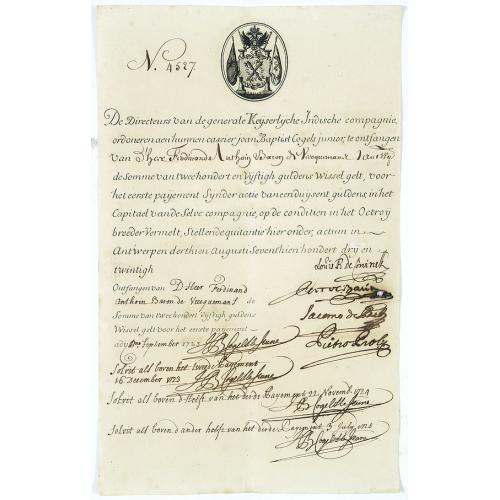 N. 4527
De Directeurs van de generale Keyserlyche Indische compagnie,
ordoneren aen hunnen cassier joan Baptist Cogels junior, te ontfangen
van D'her Ferdinande Anthoin
de Somme van tweehondert en Vijftigh guldens Wissel gelt, voor
het eerste payement Synder actie van een duysent guldens in het
Capitael van de Selve compagnie, op de conditien in het Octroy
breeder Vermelt, Stellende quitantie hier onder, actum in
Antwerpen derthien Augusti Seventhien hondert dry en
twintigh
Ontfangen van D Heer Ferdinand
Anthoin Baron de Vecquemans de
Somme van tweehondert vijftigh guldens
Wissel gelt voor het eerste payement
ady September 1723 JB Cogels le Jeune
Pietro Proly
Solvit als boven het tweede Payement
16 December 1723 JB Cogels le Jeune
Solvit als boven d'helft van het derde Payement 22 Novemb. 1724
JB Cogels le Jeune
Solvit als boven d'ander helft van het derde Payement 3 July 1725
JB Cogels le Jeune